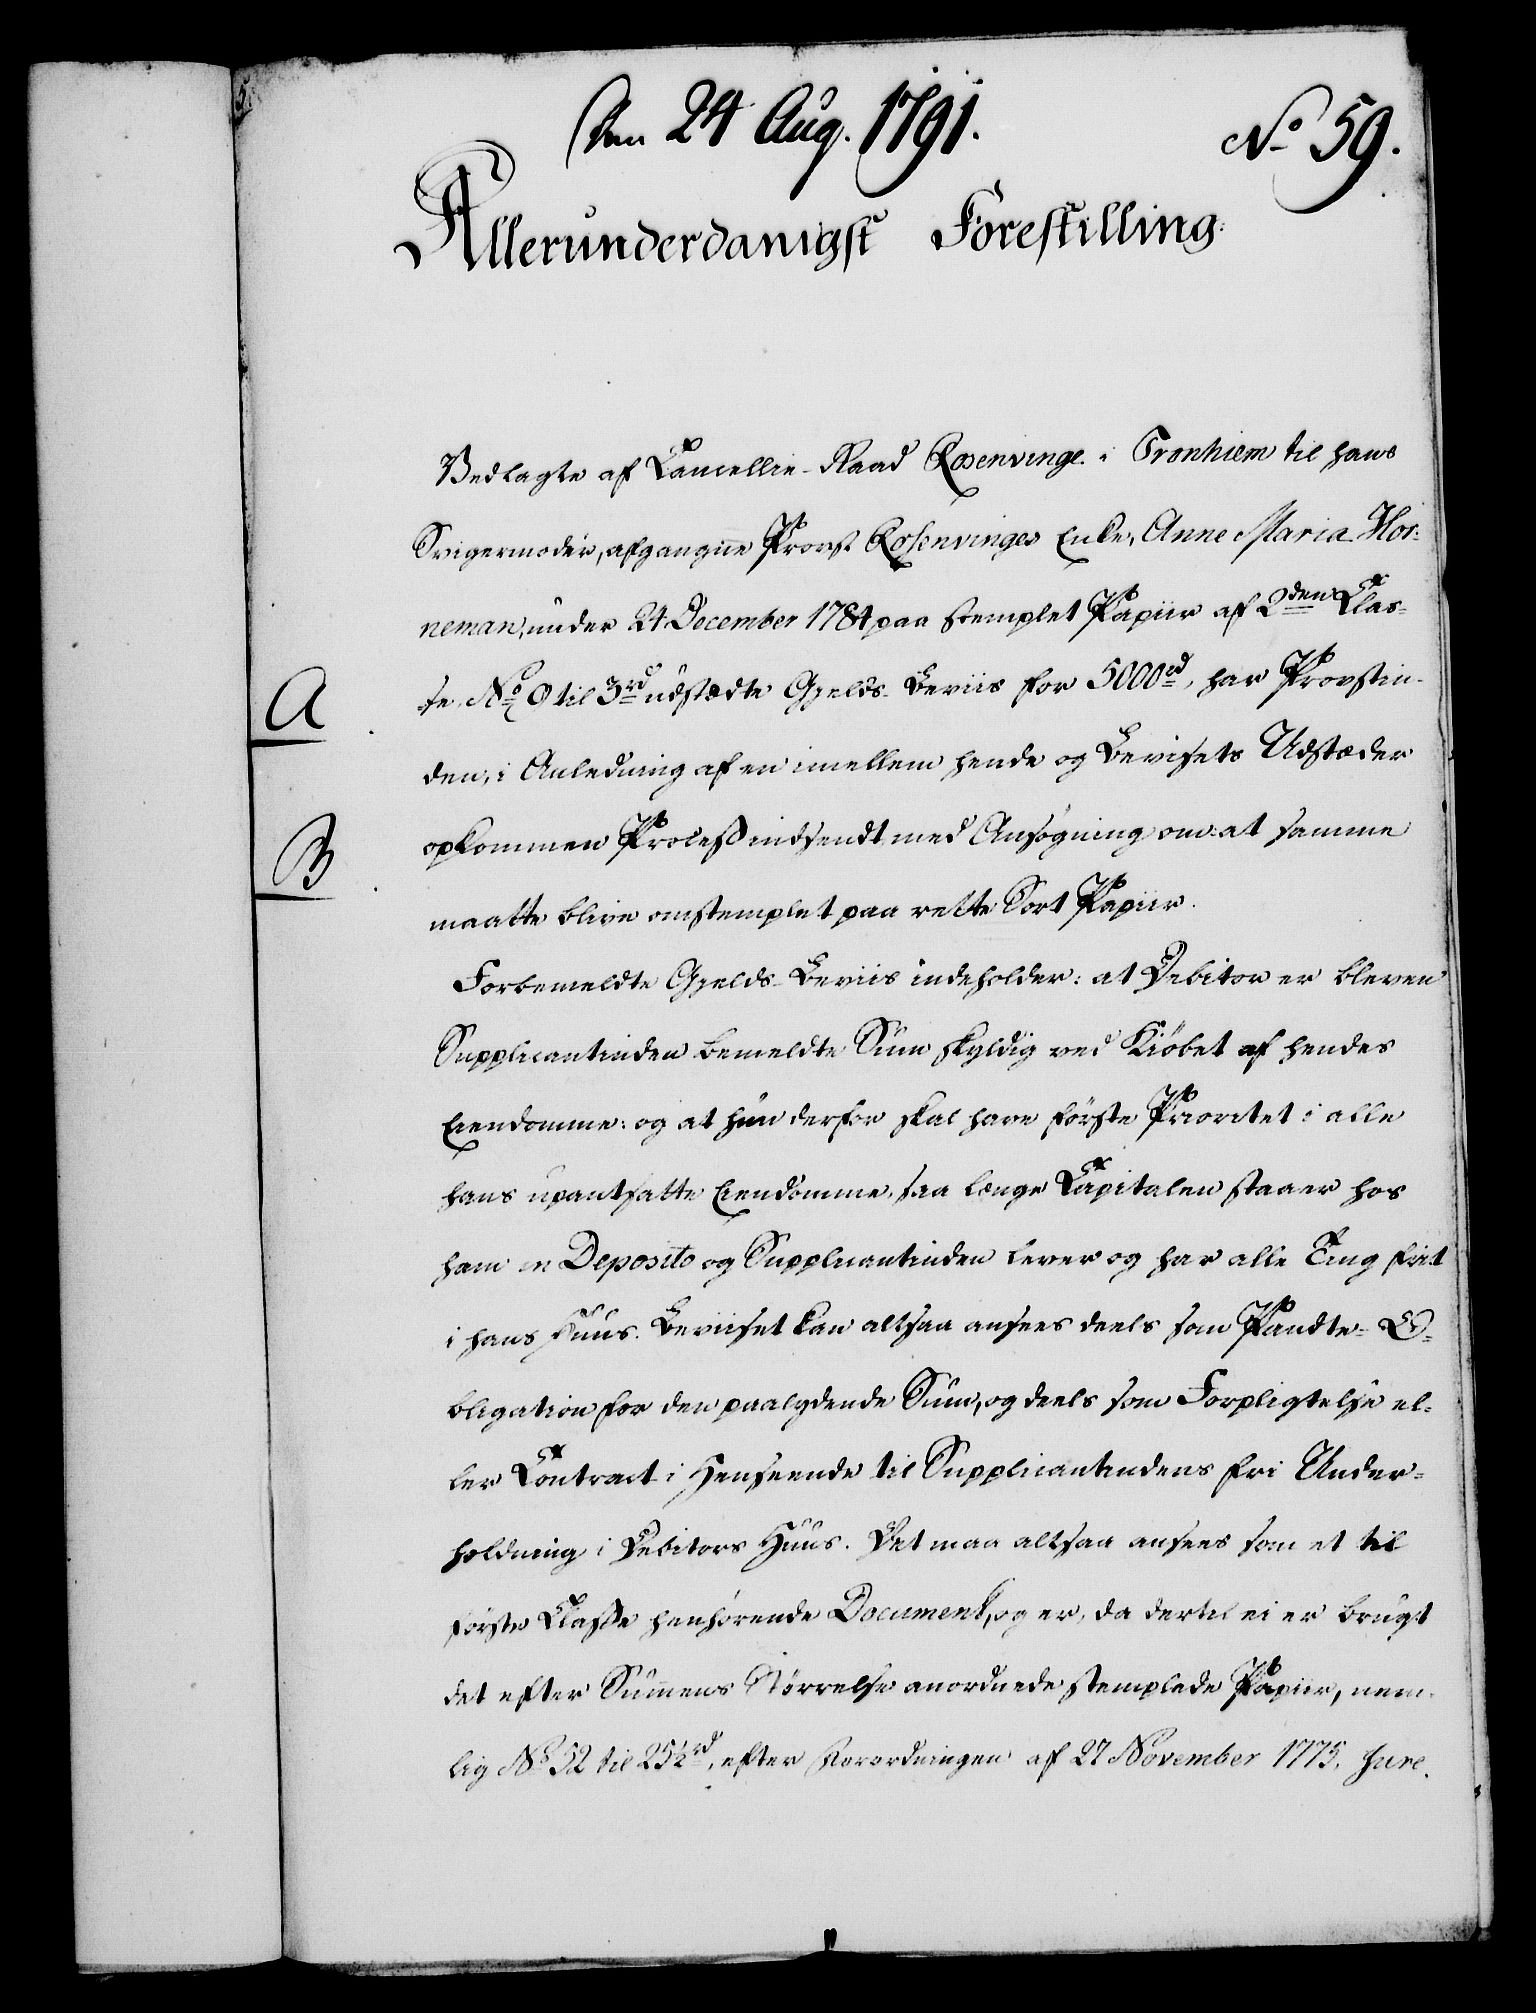 Den 24 Aug. 1791.
No 59.
Allerunderdanigst Forestilling.
Vedlagte af Cancellie-Raad Rosenvinge i Tronhiem til hans
Svigermoder, afgangne Provst Rosenvinges Enke, Anne Maria Hor:
neman, under 24 December 1784 paa stemplet Papiir af 2den Clas-
A
se No 9 til 3rd udstædte Gjelds-Beviis for 5000rd, har Provstin-
den, i Anledning af en imellem hende og Bevisets Udstæder
B
opkommen Proces indsendt med Ansøgning om: at samme
maatte blive omstemplet paa rette Sort Papiir.
Forbemeldte Gjelds-Beviis indeholder: at Debitor er bleven
Supplicantinden bemeldte Sum skyldig ved Kiöbet af hendes
Eiendomme: og at hun derfor skal have förste Prioritet i alle
hans upantsatte Eiendomme, saa længe Capitalen staaer hos
ham in Deposito og Supplicantinden lever og har alle Ting friet
i hans Huus. Beviiset kan altsaa ansees deels som Pandte-O-
bligation for den paalydende Sum, og deels som Forpligtelse el-
ler Contract i Henseende til Supplicantindens fri Under-
holdning i Debitors Huus. Det maa altsaa ansees som et til
förste Classe henhörende Document, og er, da dertil ei er brugt
det efter Summens Störrelse anordnede stemplede Papiir, nem-
lig No 52 til 25½rd, efter Forordningen af 27 November 1775, hvre-